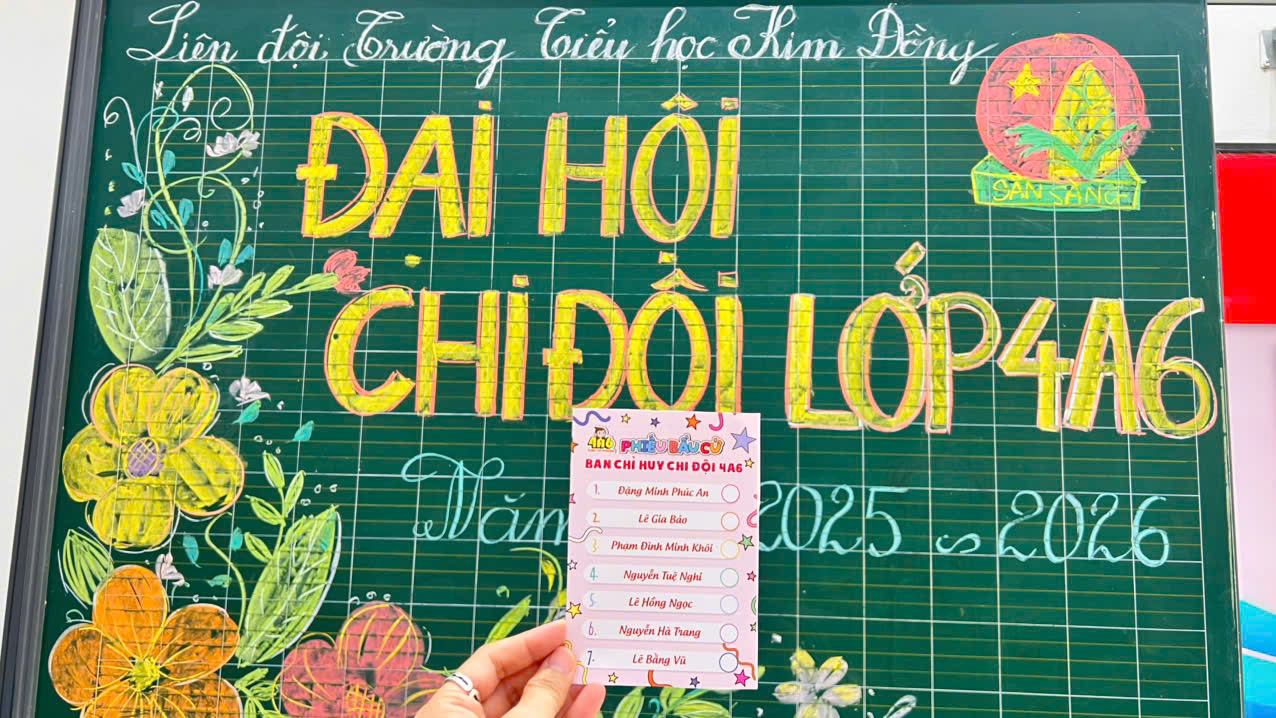 Liên đội Trường Tiểu học Kim Đồng
ĐẠI HỘI
CHI ĐỘI LỚP 4A6
SẴN SÀNG
Năm 2025 ~ 2026
4A6
PHIẾU BẦU CỬ
BAN CHỈ HUY CHI ĐỘI 4A6
1. Đặng Minh Phúc An
2. Lê Gia Bảo
3. Phạm Đình Minh Khôi
4. Nguyễn Tuệ Nghi
5. Lê Hồng Ngọc
6. Nguyễn Hà Trang
7. Lê Bằng Vũ